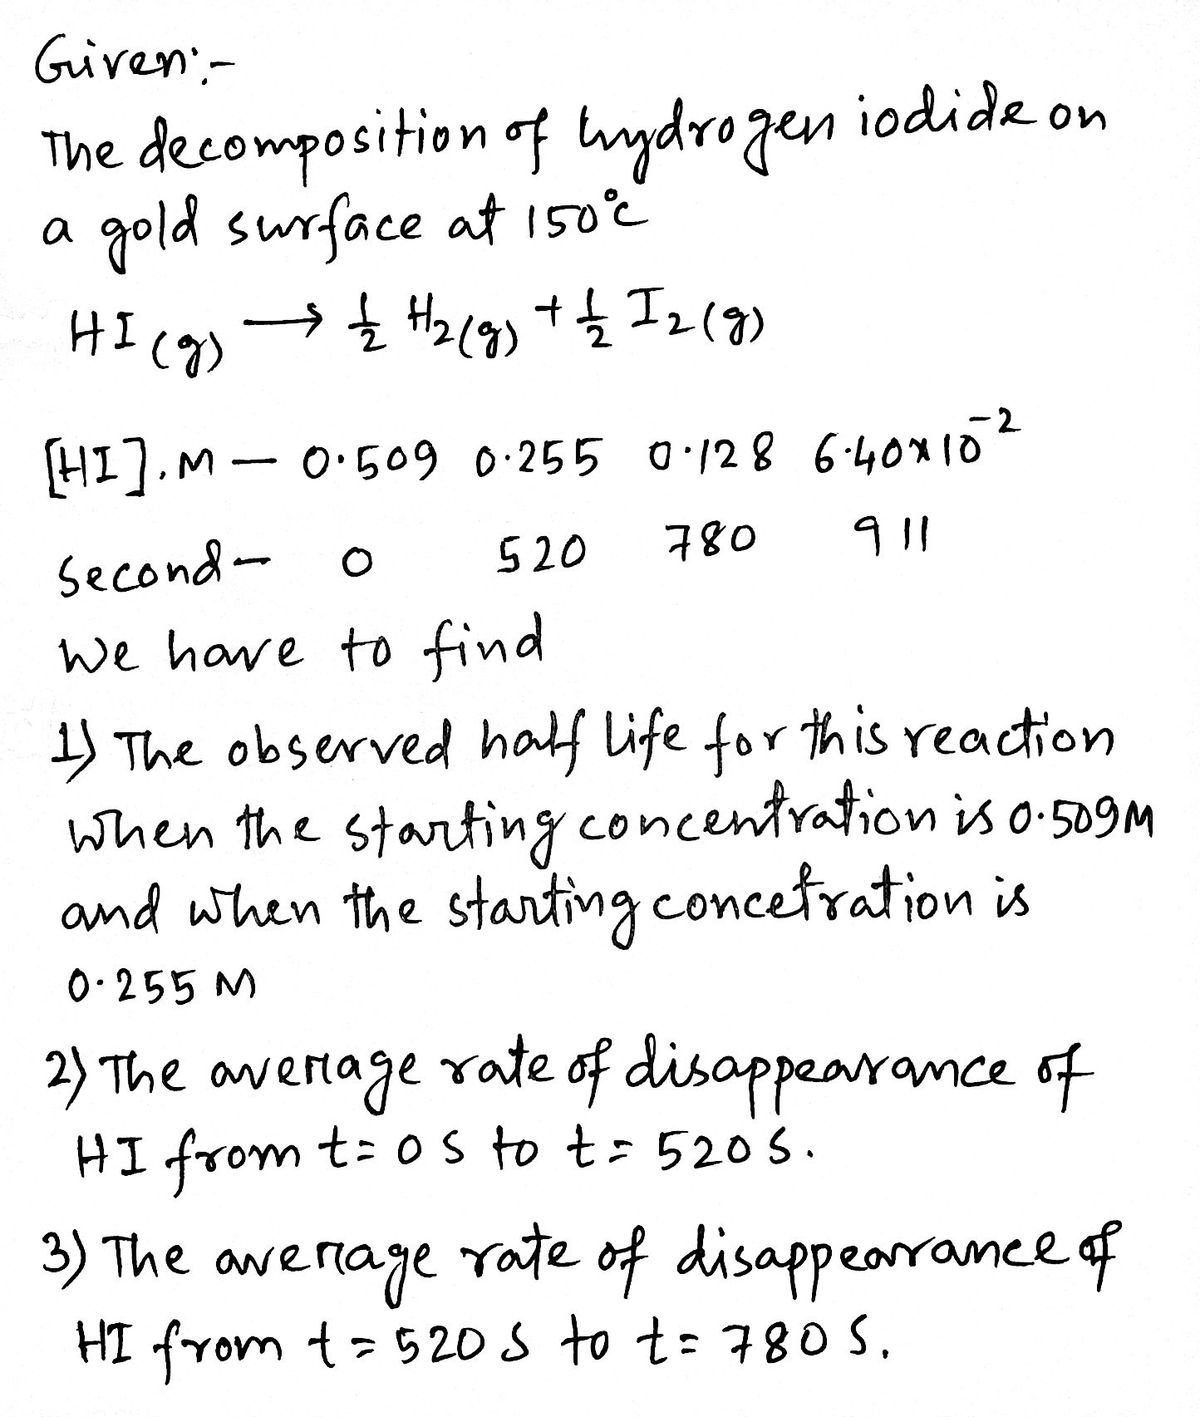 Given:-
The decomposition of hydrogen iodide on
a gold surface at 150°c
HI(g) → 1/2 H2(g) + 1/2 I2(g)
[HI].M - 0.509 0.255 0.128 6.40×10^-2
Second - 0 520 780 911
We have to find
1) The observed half life for this reaction
when the starting concentration is 0.509M
and when the starting concetration is
0.255 M
2) The average rate of disappearance of
HI from t= 0 s to t= 520 s.
3) The average rate of disappearance of
HI from t= 520 s to t= 780 s.